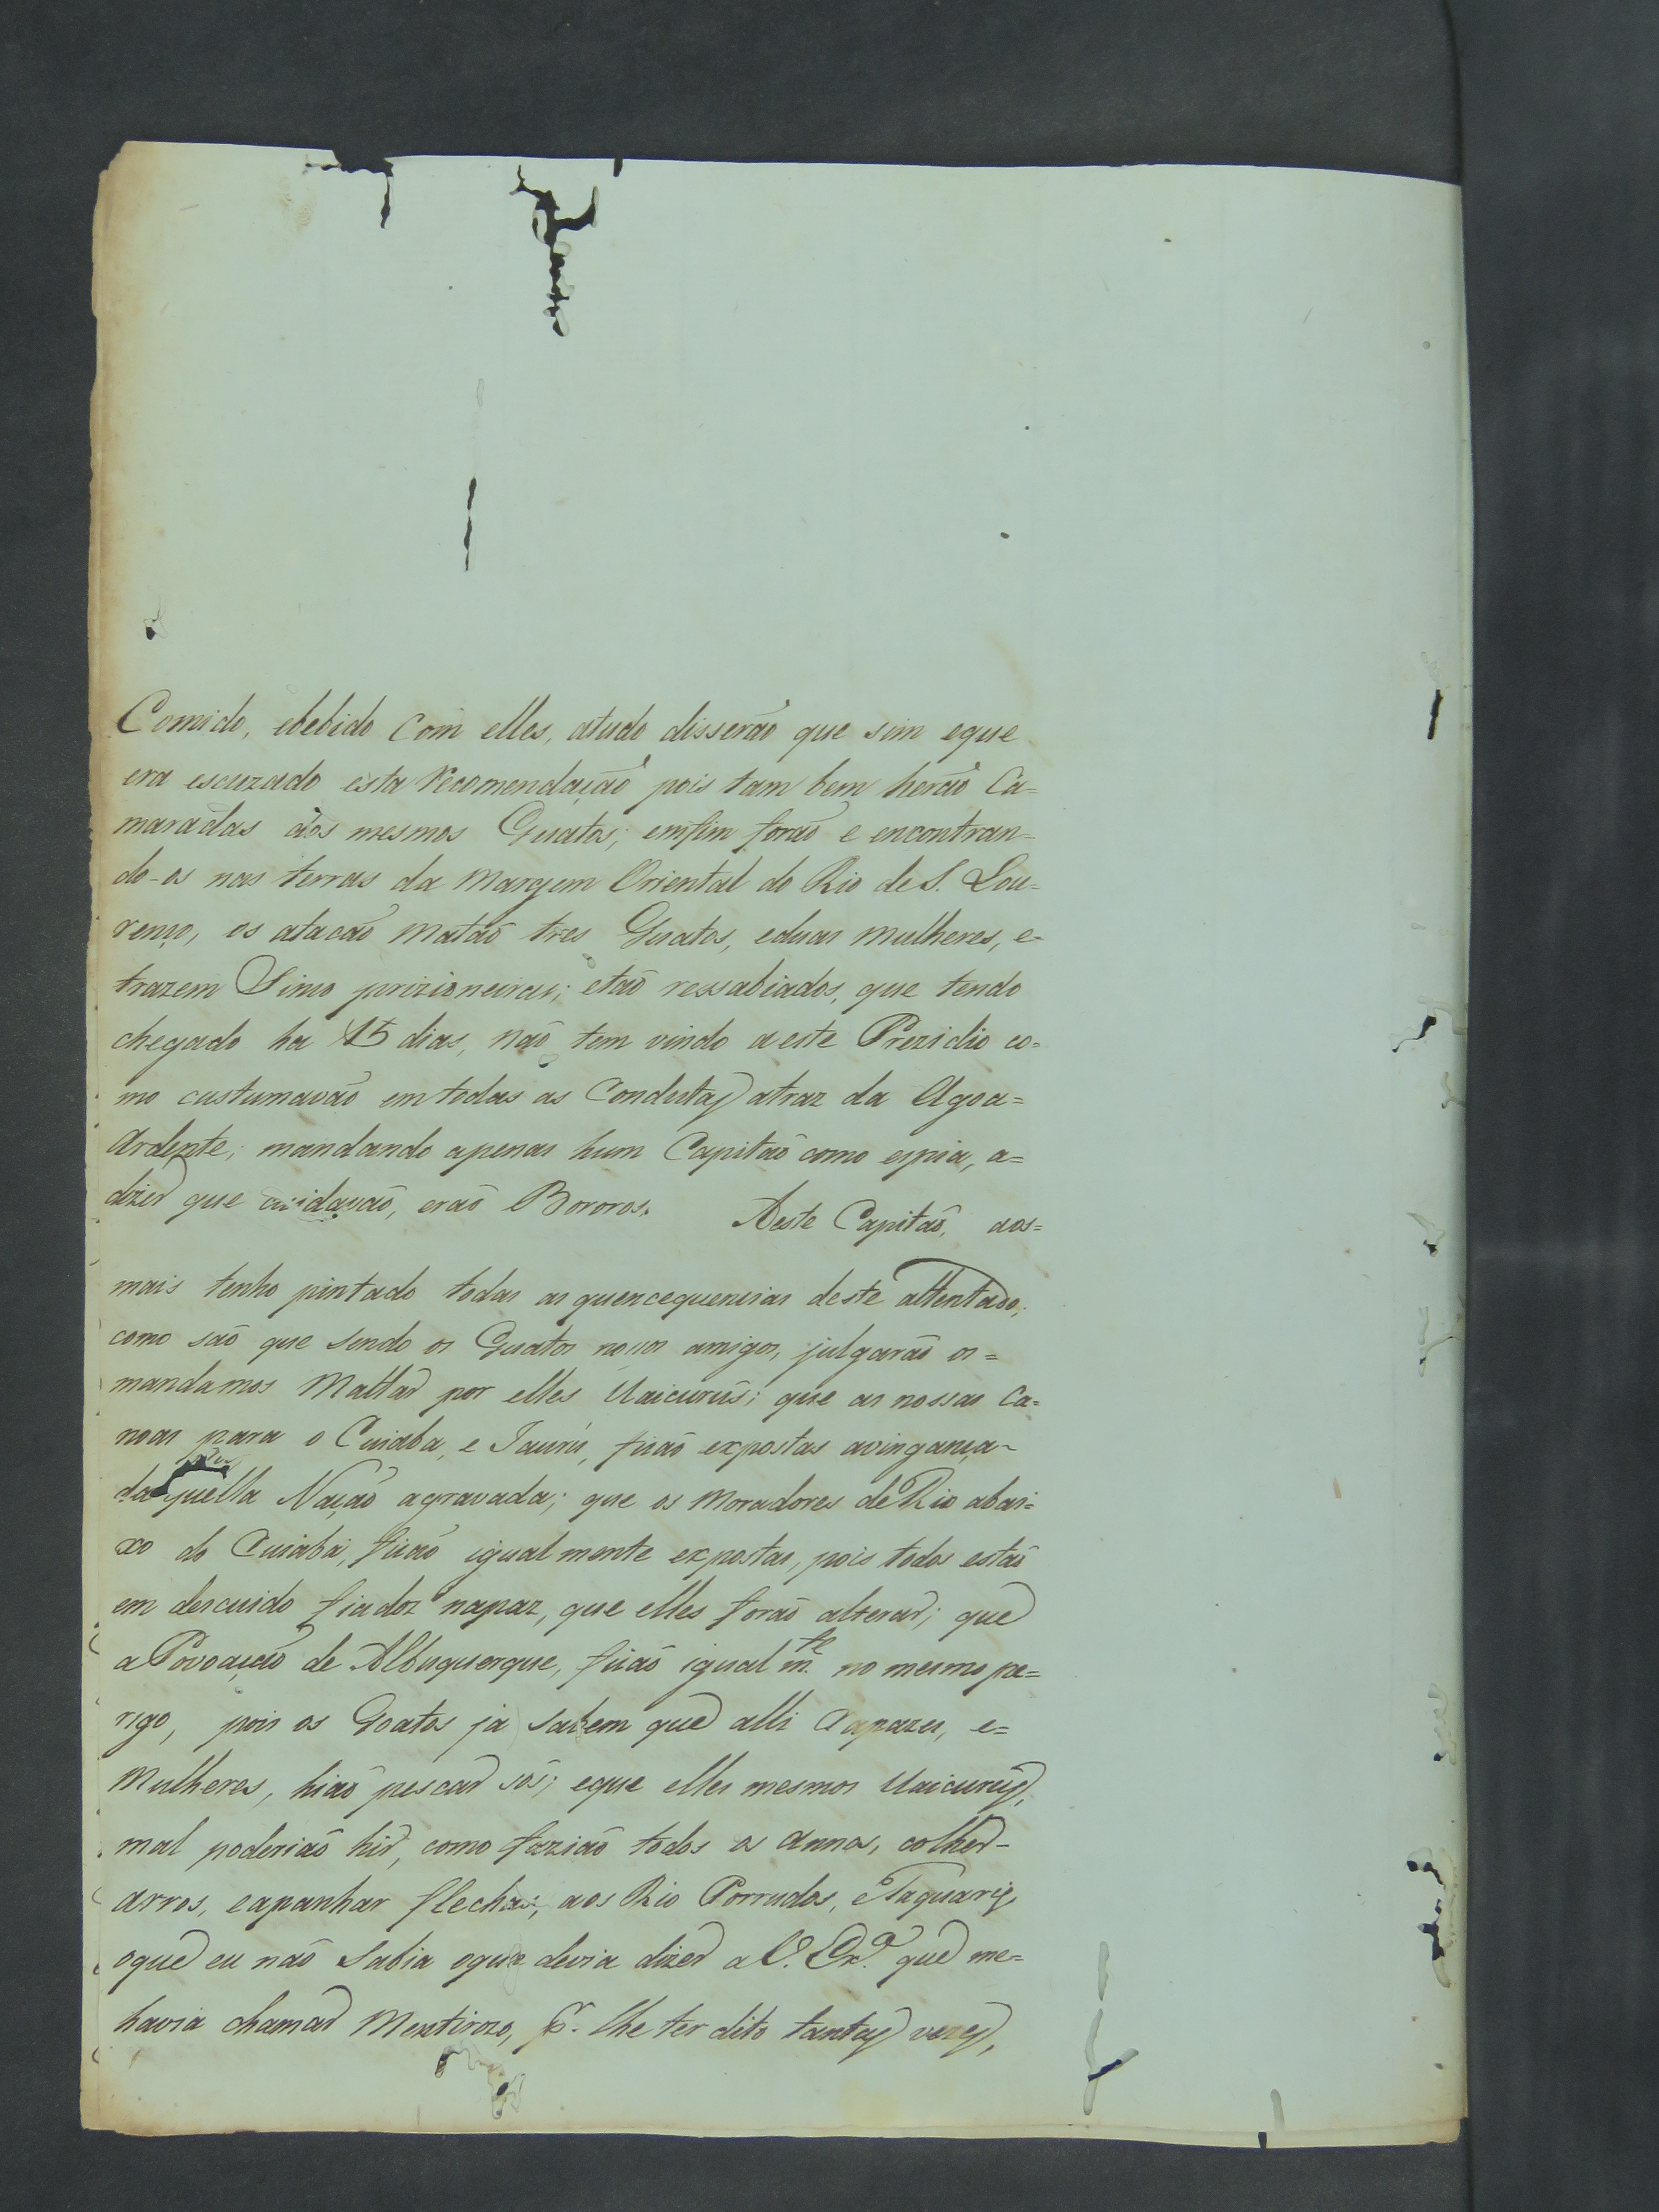 Comido, ebebido Com elles, atudo disserão que sim eque
era escuzado esta recomendação pois tam bem herão Ca=
maradas dos mesmos Guatos; emfim forão e encontran=
do-os nas terras da Margem Oriental do Rio de S. Lou=
renço, os atacão Matão tres Guatos, eduas Mulheres, e-
trazem Sinco prizioneiros; etão ressabiados, que tendo
chegado ha 15 dias, não tem vindo a este Prezidio co=
mo custumavão em todas as Condestas atraz da Agoa=
Ardente; mandando apenas hum Capitão como espia, a=
dizer que cuidavão, erão Bororos. Aeste Capitão, aos=
mais tenho pintado todas as quencequencias deste attentado;
como são que sendo os Guatos nossos amigos, julgarão os=
mandamos Mattar por elles Uaicurús; que as nossas Ca=
noas para o Cuiaba, e Jaurú, ficão expostas avingança-
daquella Nação agravada; que os Moradores de Rio abai=
xo do Cuiabá, ficão igual mente expostas, pois todos estão
em descuido fiadoz napaz, que elles forão alterar; que
a Povoação de Albuquerque, ficão igual m.te no mesmo pe=
rigo, pois os Goatos ja sabem que alli Capazes, e=
Mulheres, hião pescar sós; eque elles mesmos Uaicurús,
mal poderião hir, como fazião todos os Annos, colher-
arros, eapanhar flechas; aos Rio Porrudos, eTaquaris,
oque eu não Sabia oque devia dizer a V. Ex.ª que me=
havia chamar Mentirozo, p.r lhe ter dito tantas vezes,